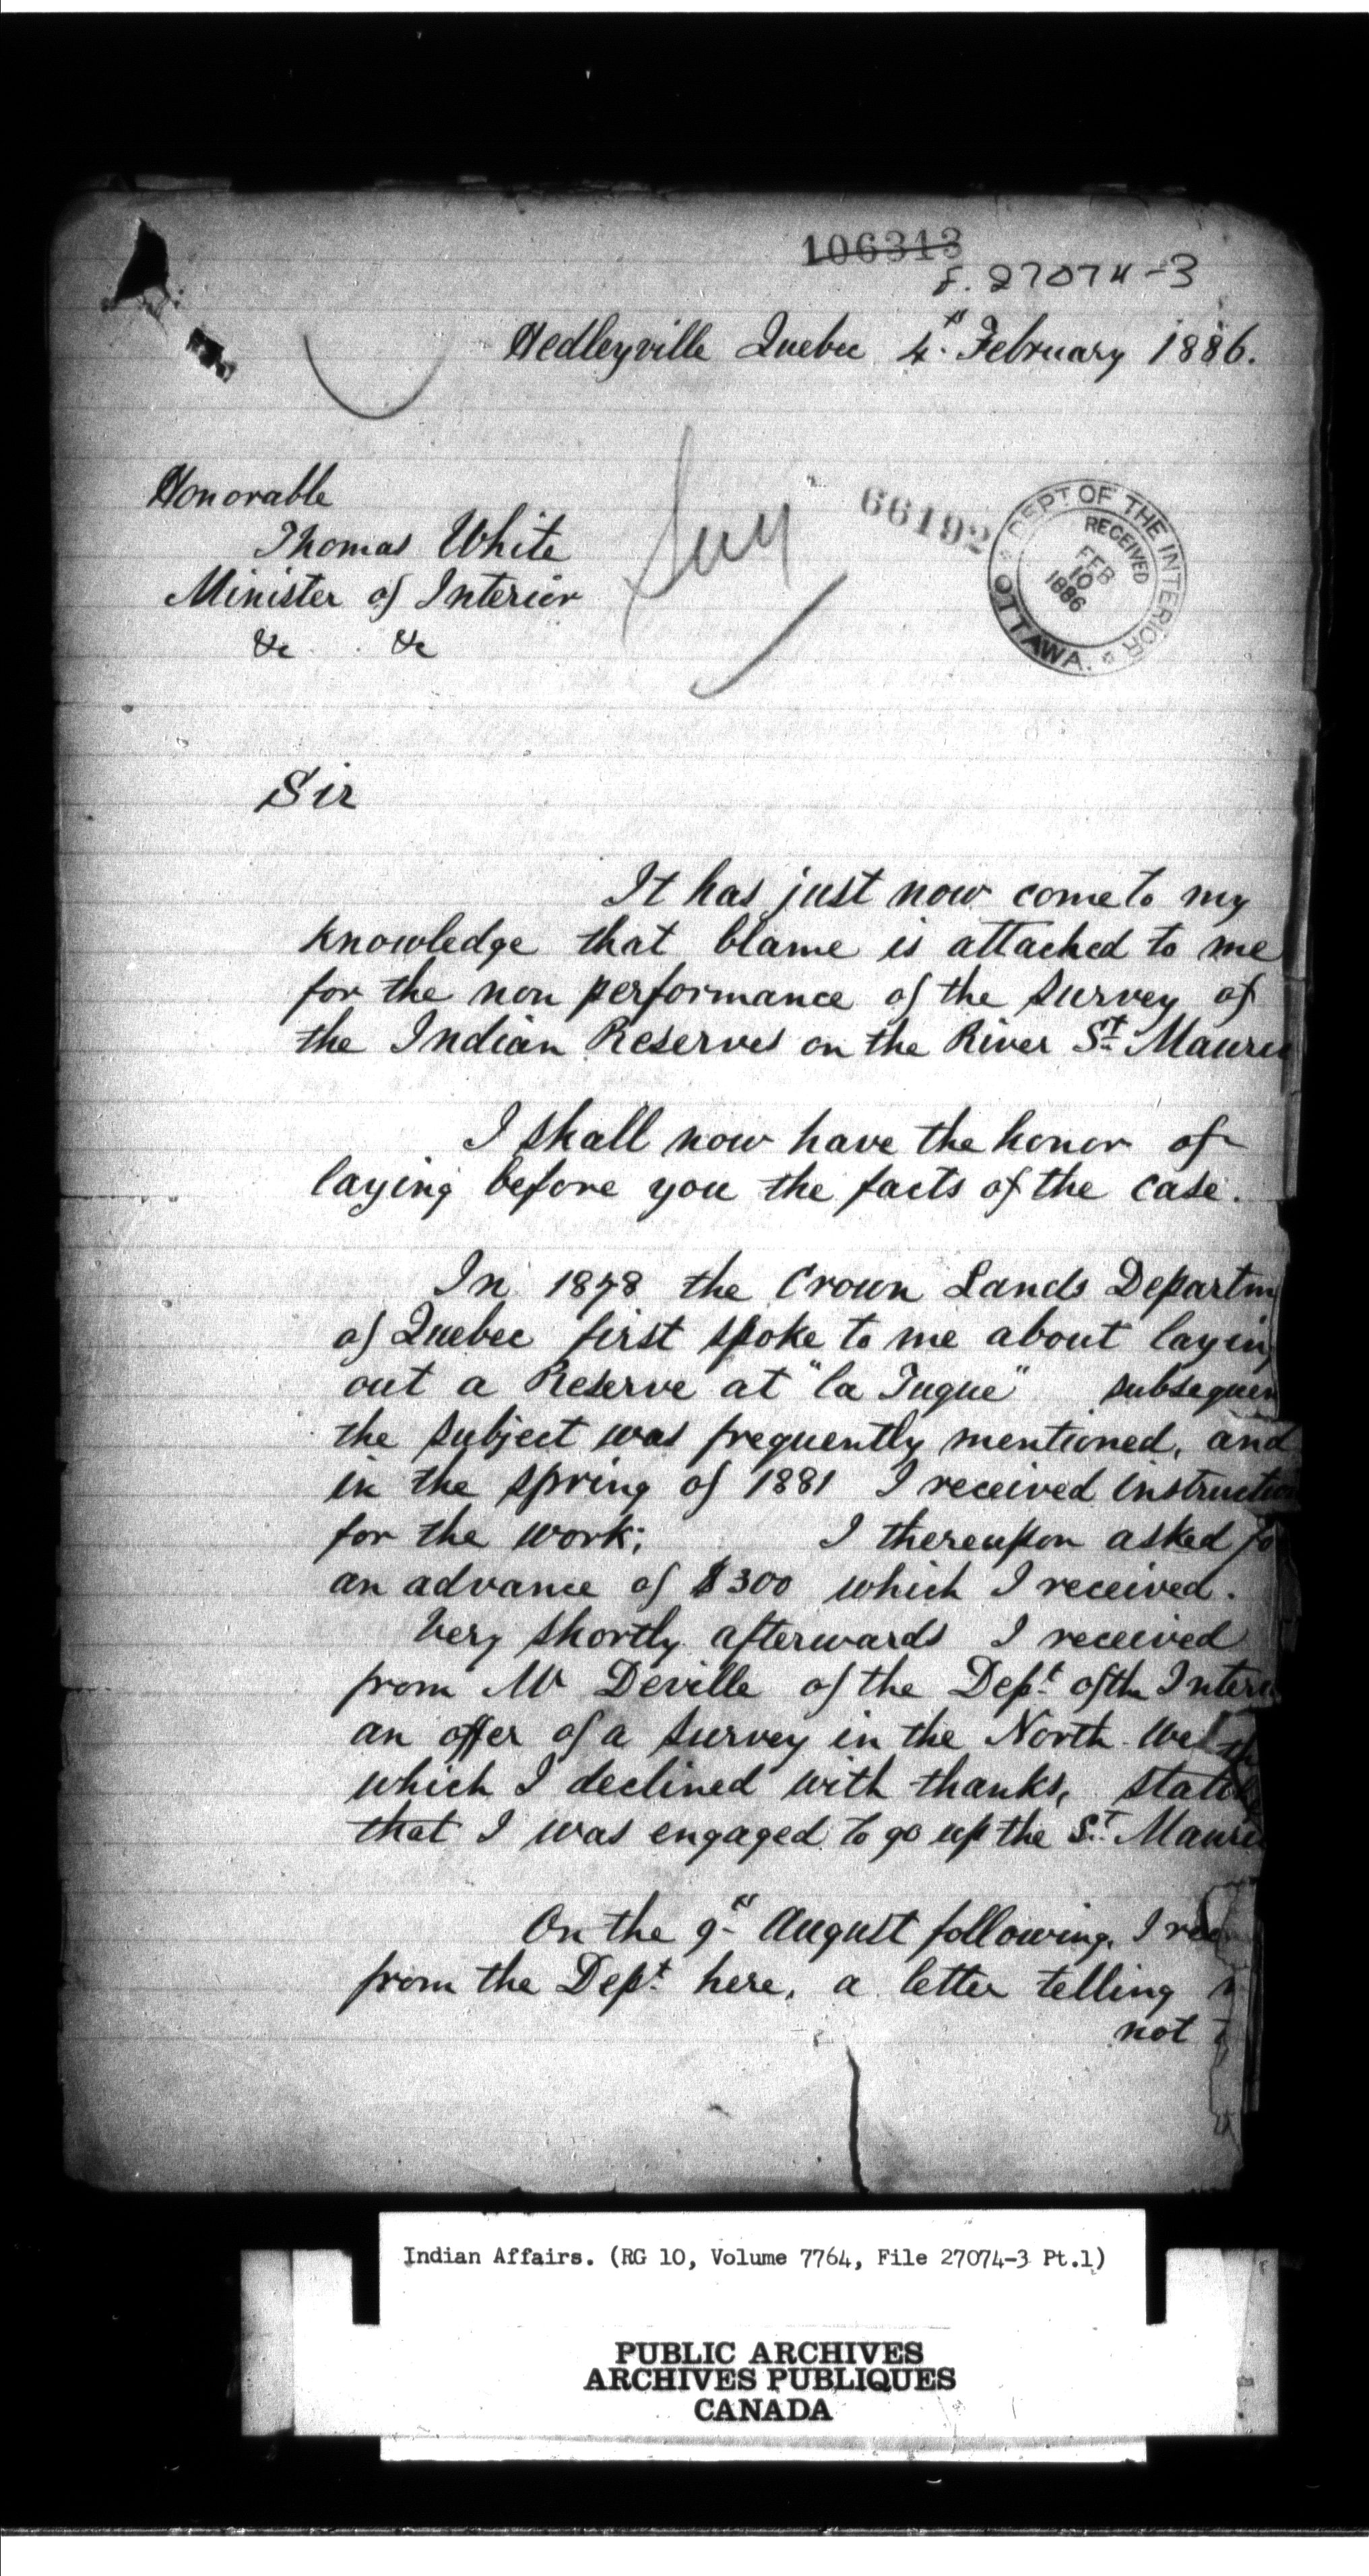 106313
F. 27074-3
Hedleyville Quebec 4th February 1886.
Honorable
Thomas White
Minister of Interior
&c . &c
66192
DEPT OF THE INTERIOR
RECEIVED
FEB
10
1886
OTTAWA.
Sir
It has just now come to my
knowledge that blame is attached to me
for the non performance of the survey of
the Indian Reserves on the River St Mauri
I shall now have the honor of
laying before you the facts of the case.
In 1878 the Crown Lands Departm
of Quebec first spoke to me about laying
out a Reserve at "la Tuque" subsequen
the subject was frequently mentioned, and
in the spring of 1881 I received instruction
for the work; I thereupon asked fo
an advance of $300 which I received.
Very shortly afterwards I received
from Mr Deville of the Dept of the Inter
an offer of a survey in the North West
which I declined with thanks, stating
that I was engaged to go up the St Mauri
On the 9th August following, I rec
from the Dept here, a letter telling
not
Indian Affairs. (RG 10, Volume 7764, File 27074-3 Pt.1)
PUBLIC ARCHIVES
ARCHIVES PUBLIQUES
CANADA